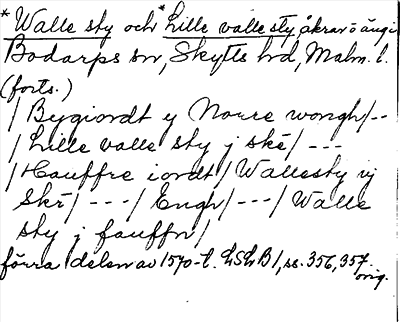 * Walle sty och * Lille valle sty, åkrar o äng i
Bodarps sn, Skytts hd, Malm. l.
(forts.)
/ Bygiordt y Norre wongh/--
/ Lille valle sty j skē/ ---
/ Hauffre iordt / Wallesty iij
Skē/ ---/ Engh/ ---/ Walle
sty j fauffn/
förra delen av 1570-t. LSLB1, ss. 356, 357.
orig.